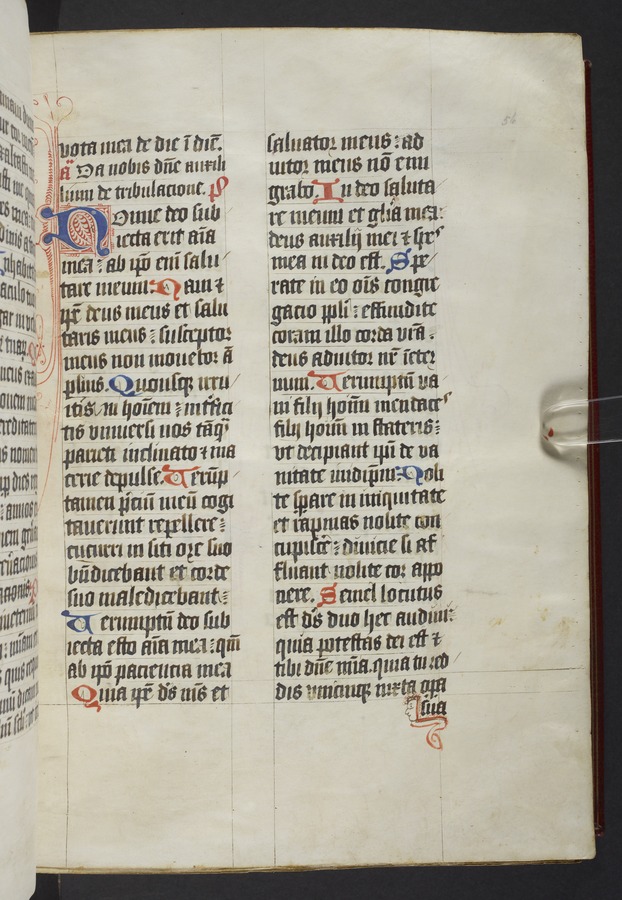 vota mea de die ī diē.
a Da nobis dn̄e auxili
lium de tribulacione. p̄
Nonne deo sub
iecta erit aīa
mea : ab ip̄o eni̅ salu
tare meum. Nam ⁊
ip̄e deus meus et salu
taris meus : susceptor
meus non mouebor ā
plius. Quousqꝫ irru
itis in hoīem : int̄fici
tis vniuersi vos tāqᷣ
parieti inclinato ⁊ ma
cerie depulse. Verūp
tamen p̄ciū meū cogi
tauerunt repellere :
cucurri in siti ore suo
bn̄dicebant et corde
suo maledicebant :
Verumptn̄ deo sub
iecta esto aīa mea : qm̄
ab ip̄o paciencia mea
Quia ip̄e ds̄ ms̄ et
saluator meus : ad
iutor meus nō emi
grabo. In deo saluta
re meum et gl̄ia mea :
deus auxilij mei ⁊ spes
mea in deo est. Spe
rate in eo oīs congre
gacio ppl̄i : effundite
coram illo corda vr̄a :
deus adiutor nr̄ ī eter
num. Verumptn̄ va
ni filij hoīm mendaces
filij hoīm in stateris :
vt decipiant ip̄i de va
nitate in idip̄m. Noli
te sꝑare in iniquitate
et rapinas nolite con
cupisc̄e : diuicie si af
fluant nolite cor appo
nere. Semel locutus
est ds̄ duo hec audiui :
quia potestas dei est ⁊
tibi dn̄e mīa. quia tu red
dis vnicuiqꝫ iuxta opa
sua
56